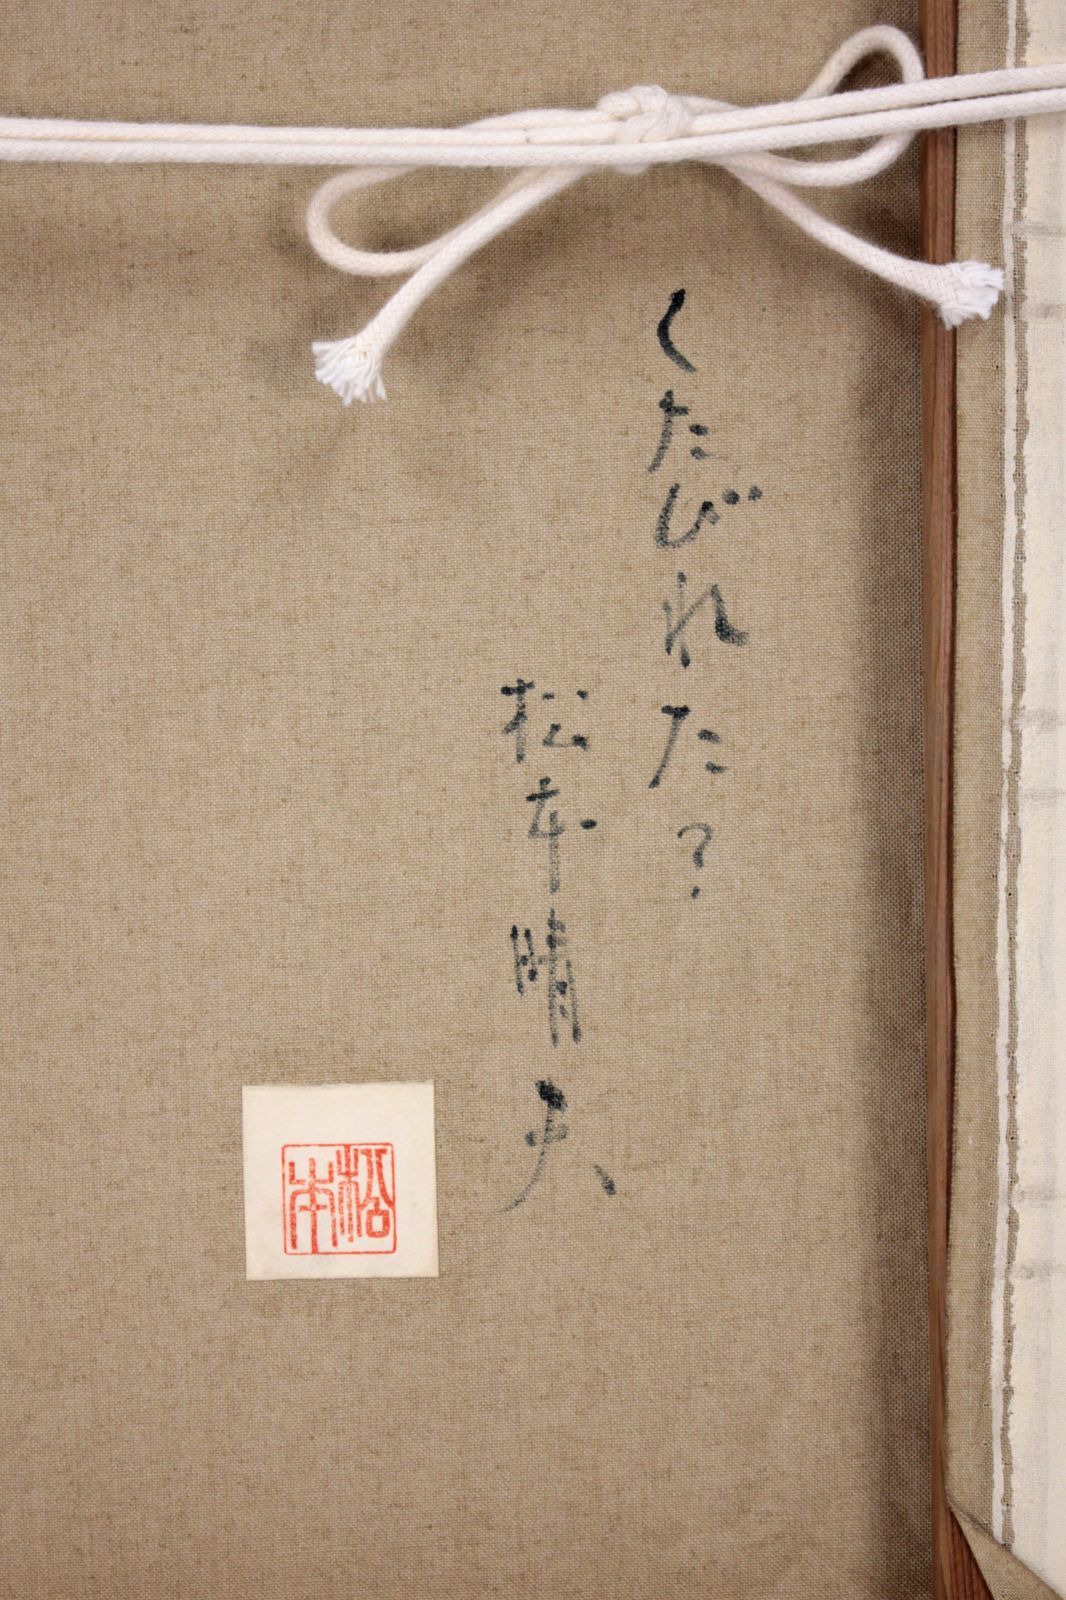 くたびれた?
松本晴夫
松本